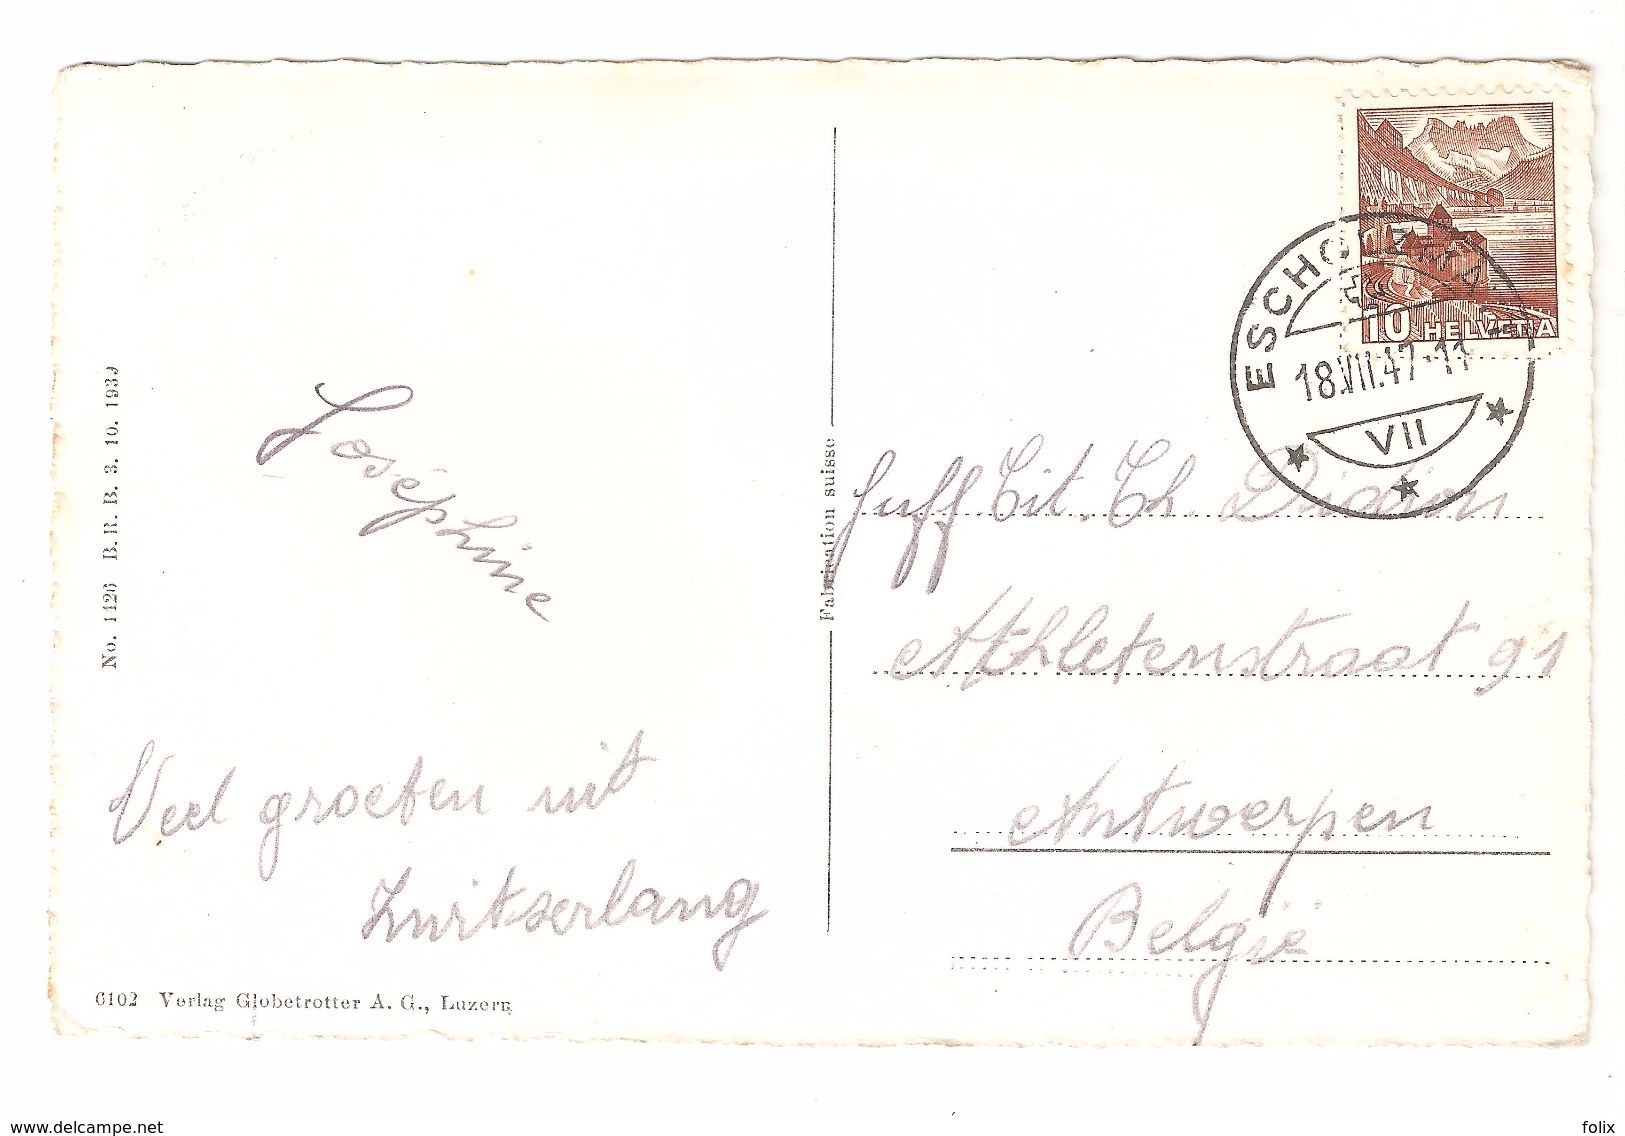 10 HELVETIA
ESCHOLZMA
18.VII.47-11
VII
No. 1120 B.R.B. 3. 10. 1939
Joséphine
Veel groeten uit
Zwitserlang
6102 Verlag Globetrotter A. G., Luzern
Fabrication suisse
Juff. Cit. Th. Digion
Athletenstraat 91
Antwerpen
België
www.delcampe.net
folix